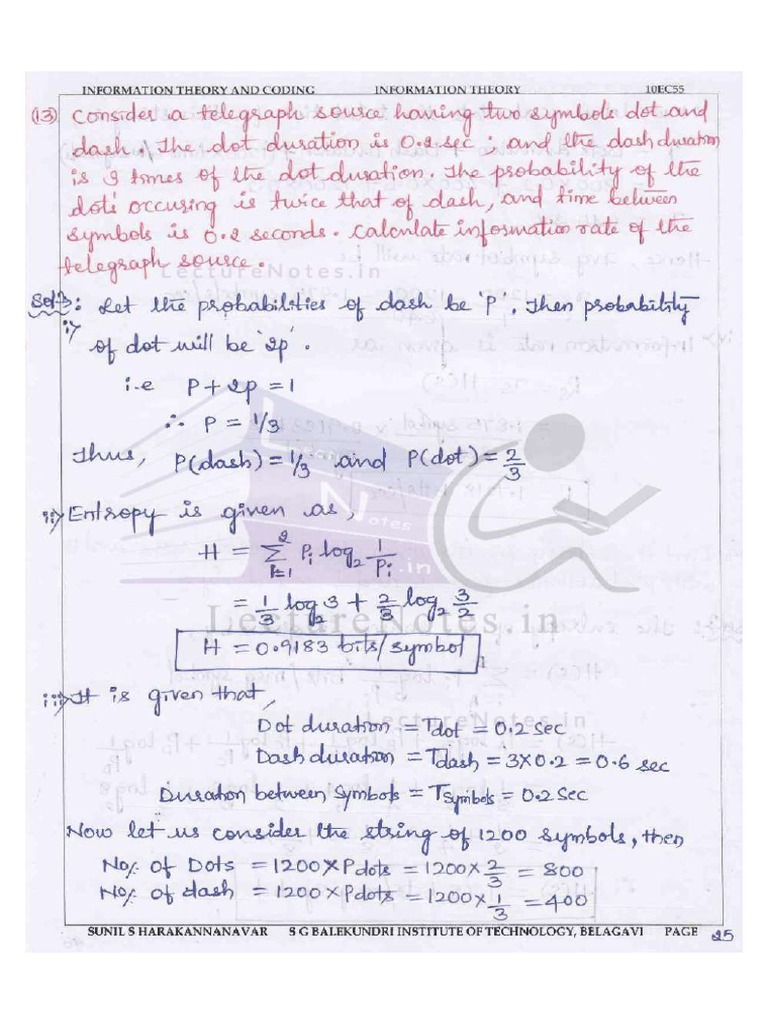 INFORMATION THEORY AND CODING INFORMATION THEORY 10EC55
(13) Consider a telegraph source having two symbols dot and
dash. The dot duration is 0.2 sec ; and the dash duration
is 3 times of the dot duration. The probability of the
dots occuring is twice that of dash, and time between
symbols is 0.2 seconds. Calculate information rate of the
telegraph source.
LectureNotes.in
Soln: Let the probabilities of dash be 'P'. Then probability
i) of dot will be '2p'.
i.e P + 2p = 1
∴ P = 1/3
Thus, P(dash) = 1/3 and P(dot) = 2/3
ii) Entropy is given as,
H = 2∑i=1 Pi log2 1/Pi
= 1/3 log2 3 + 2/3 log2 3/2
LectureNotes.in
H = 0.9183 bits/symbol
iii) It is given that,
LectureNotes.in
Dot duration = Tdot = 0.2 sec
Dash duration = Tdash = 3×0.2 = 0.6 sec
Duration between symbols = Tsymbols = 0.2 sec
Now let us consider the string of 1200 symbols, then
No/. of Dots = 1200 × Pdots = 1200 × 2/3 = 800
No/. of dash = 1200 × Pdots = 1200 × 1/3 = 400
SUNIL S HARAKANNANAVAR S G BALEKUNDRI INSTITUTE OF TECHNOLOGY, BELAGAVI PAGE 25